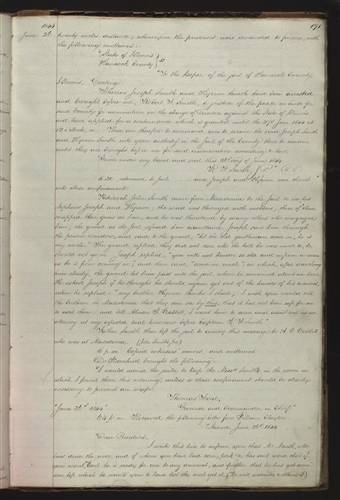 1844
June 26
171
twenty miles distance; whereupon the prisoners were remanded to prison, with
the following mittimus:
"State of Illinois
Hancock County
"To the keeper of the jail of Hancock County,
Illinois. Greeting:
Whereas Joseph Smith and Hyrum Smith have been arrested
and brought before me, Robert F. Smith, a justice of the peace in and for
said County for examination on the charge of treason against the State of Illinois
and have applied for a continuance, which is granted until the 27th June 1844 at
12 o'clock, m. These are therefore to command you to receive the said Joseph Smith
and Hyrum Smith into your custody in the jail of the County there to remain
until they are brought before me for said examination according to law.
Given under my hand and seal this 26th day of June 1844
R. F. Smith, J.P. L.S.
5.30 returned to jail and Joseph and Hyrum were thrust
into close confinement.
Patriarch John Smith came from Macedonia to the jail to see his
nephews Joseph and Hyrum; the road was thronged with mobbers; three of them
snapped their guns at him, and he was threatened by many others who recognized
him; the guard at the jail refused him admittance. Joseph saw him through
the prison window, and said to the guard, "let the old gentleman come in, he is
my uncle." The guard replied they did not care who the hell he was uncle to, he
should not go in. Joseph replied, "you will not hinder so old and infirm a man
as he is from coming in", and then said, "come in uncle"; on which, after searching
him closely, the guard let him pass into the jail, where he remained about an hour,
he asked Joseph if he thought he should again get out of the hands of his enemies,
when he replied, "my brother Hyrum thinks I shall. I wish you would tell
the brethren in Macedonia that they can see by this, that it has not been safe for me
to visit them; and tell Almon W. Babbitt, I want him to come and assist me as an
attorney at my expected trial tomorrow before Captain R. F. Smith."
Father Smith then left the jail to convey this message to A. W. Babbitt
who was at Macedonia. (John Smith, jr.)
6 p.m. Copied witnesses names, and mailed
Dr. Bernhisel brought the following:
"I would advise the jailer to keep the Messrs Smiths in the room in
which I found them this morning, unless a close confinement should be clearly
necessary to prevent an escape.
Thomas Ford,
"June 26th 1844 Governor and Commander in Chief."
6¼ p.m. Received the following letter from William Clayton
"Nauvoo, June 26th 1844
"Dear President,
I write this line to inform you that Mr. Marsh, who
lives down the river, and of whom you have had some corn, has sent word that if
you want bail he is ready for one to any amount, and further that he has got some
corn left which he wants you to have lest the mob get it